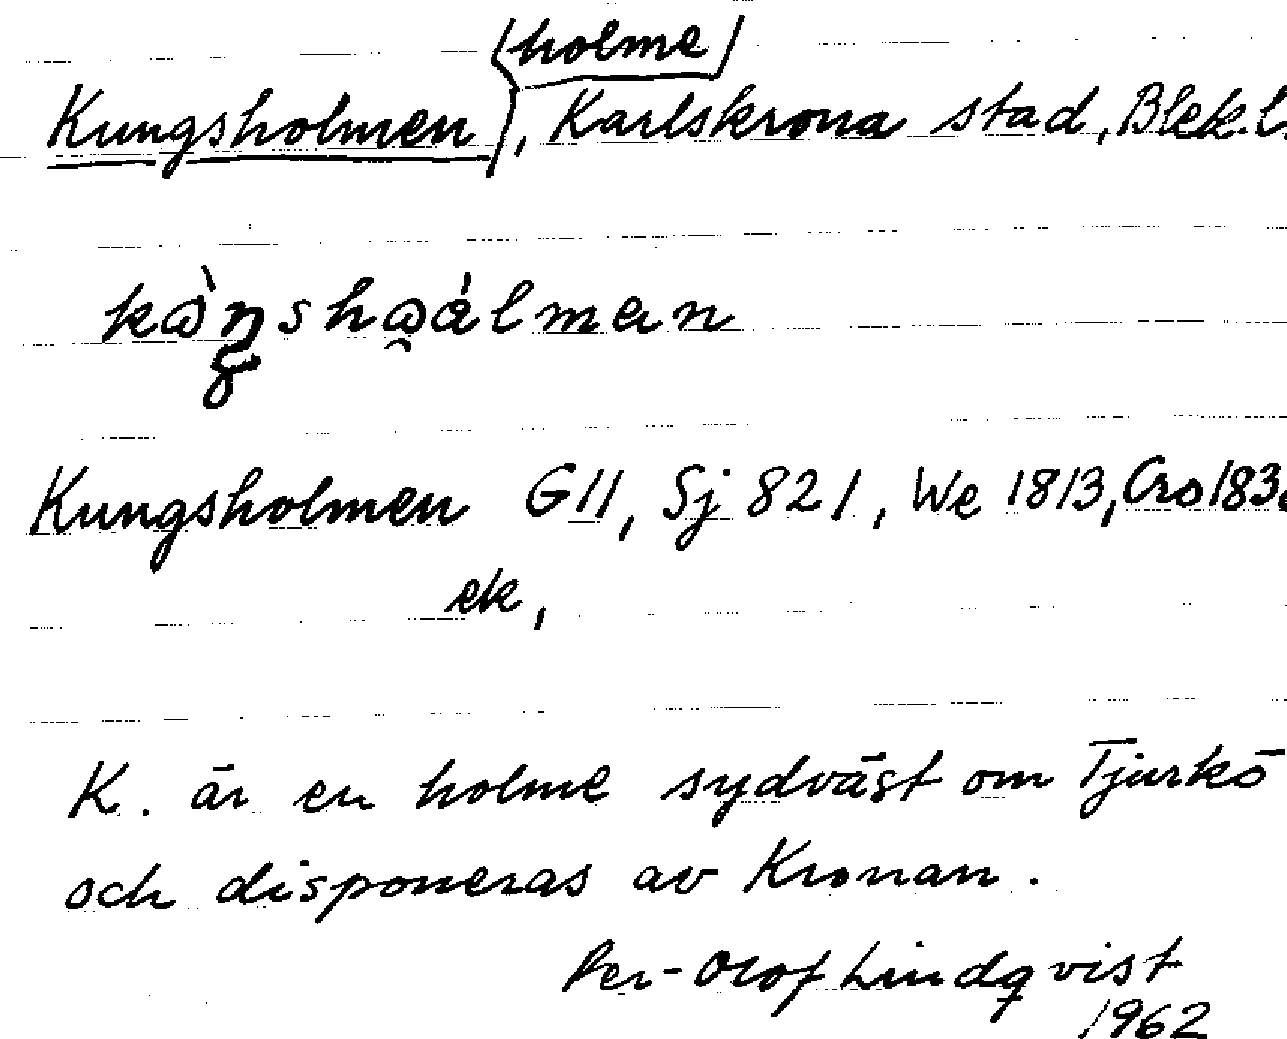 (holme)
Kungsholmen, Karlskrona stad, Blek.l
Kungsholmen G11, Sj 821, We 1813, Cro 183
ek,
K. är en holme sydväst om Tjurkö
och disponeras av Kronan.
Per-Olof Lindqvist
1962